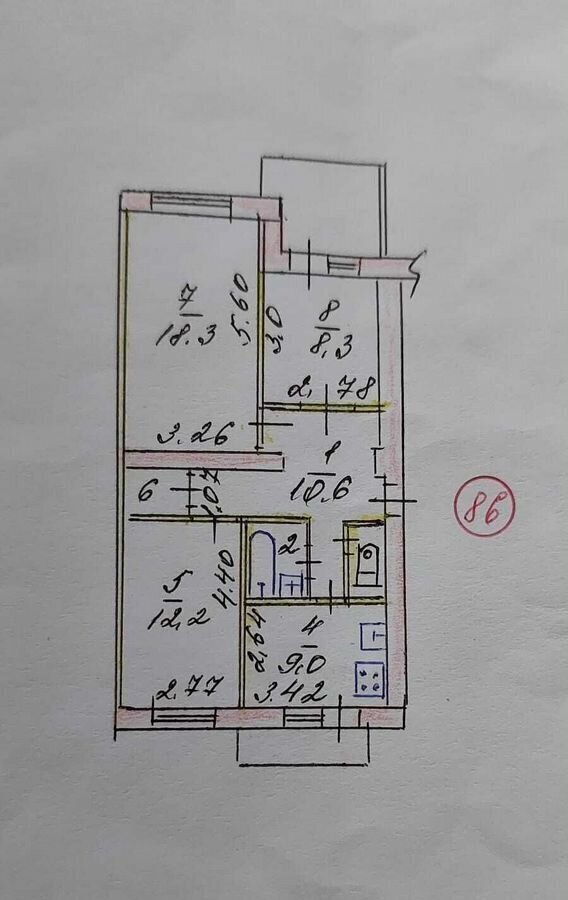 7
18.3
5.60
3.26
8
8.3
3.0
2.78
1
10.6
6
1.07
86
2
5
12.2
4.40
2.77
4
9.0
2.64
3.42